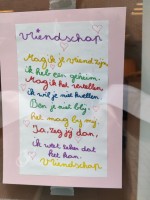 vriendschap
Mag ik je vriend zijn
ik heb een geheim.
Mag ik het vertellen
ik wil je niet kwellen
Ben je niet blij.
het mag bij mij.
Ja, zeg jij dan,
ik weet zeker dat
het kan.
Vriendschap